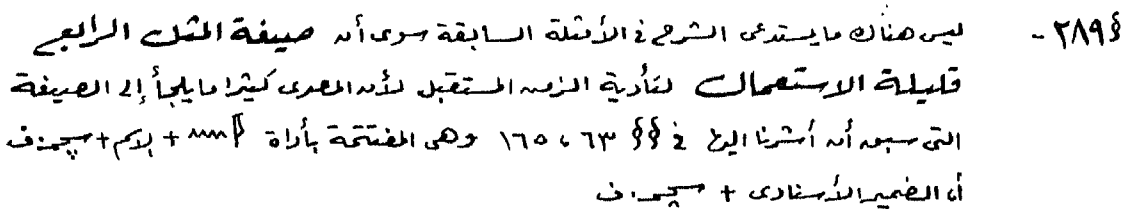 §٢٨٩- ليس هناك ما يستدعى الشرح فى الأمثلة السابقة سوى أن صيغة المثل الرابع
قليلة الاستعمال لتأدية الزمن المستقبل لأن المصرى كثيرا ما يلجأ إلى الصيغة
التى سبق أن أشرنا اليها فى §§ ٦٣ ، ١٦٥ وهى المفتتحة بأداة + اسم + سچم.ف
أو الضمير الأسنادى + سچم.ف